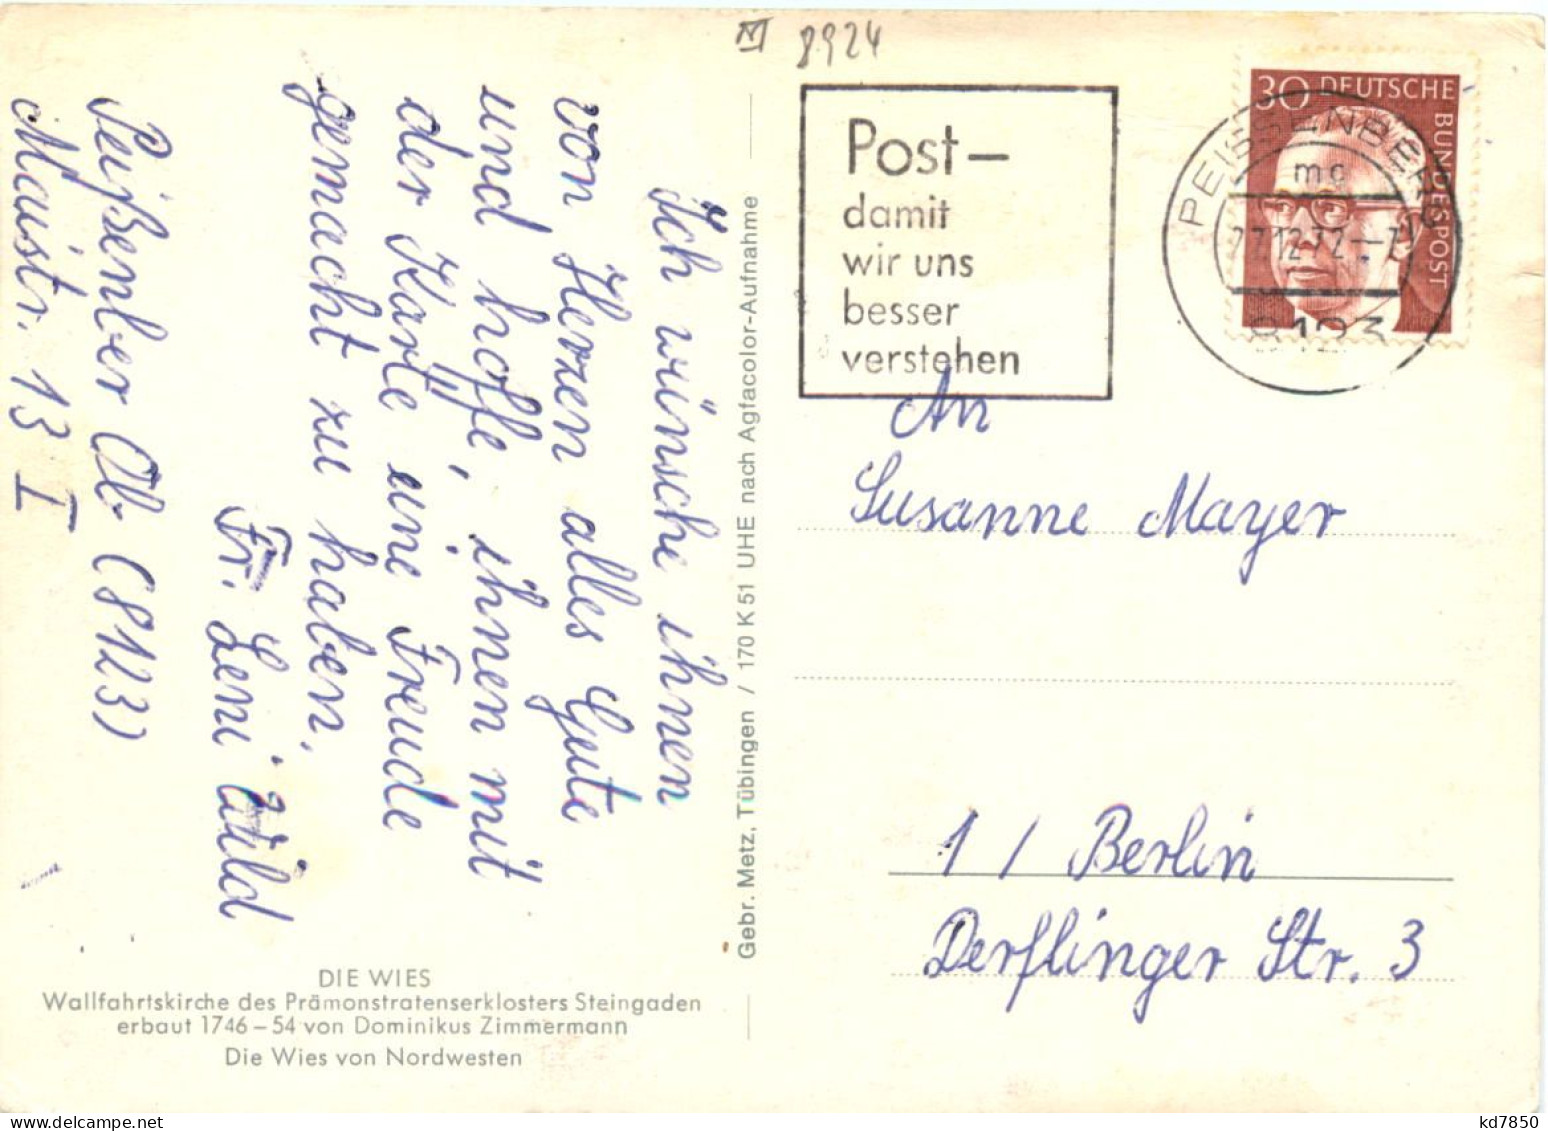 M 8924
Post–
damit
wir uns
besser
verstehen
30 DEUTSCHE
BUNDESPOST
PEISSENBERG
mc
27.12.72.–
8123
Ich wünsche ihnen
von Herzen alles Gute
und hoffe, ihnen mit
der Karte eine Freude
gemacht zu haben.
Fr. Leni Wild
Peißenber Ob. (8123)
Maistr. 13 I
An
Susanne Mayer
1 / Berlin
Derflinger Str. 3
Gebr. Metz, Tübingen / 170 K 51 UHE nach Agfacolor-Aufnahme
DIE WIES
Wallfahrtskirche des Prämonstratenserklosters Steingaden
erbaut 1746–54 von Dominikus Zimmermann
Die Wies von Nordwesten
kd7850